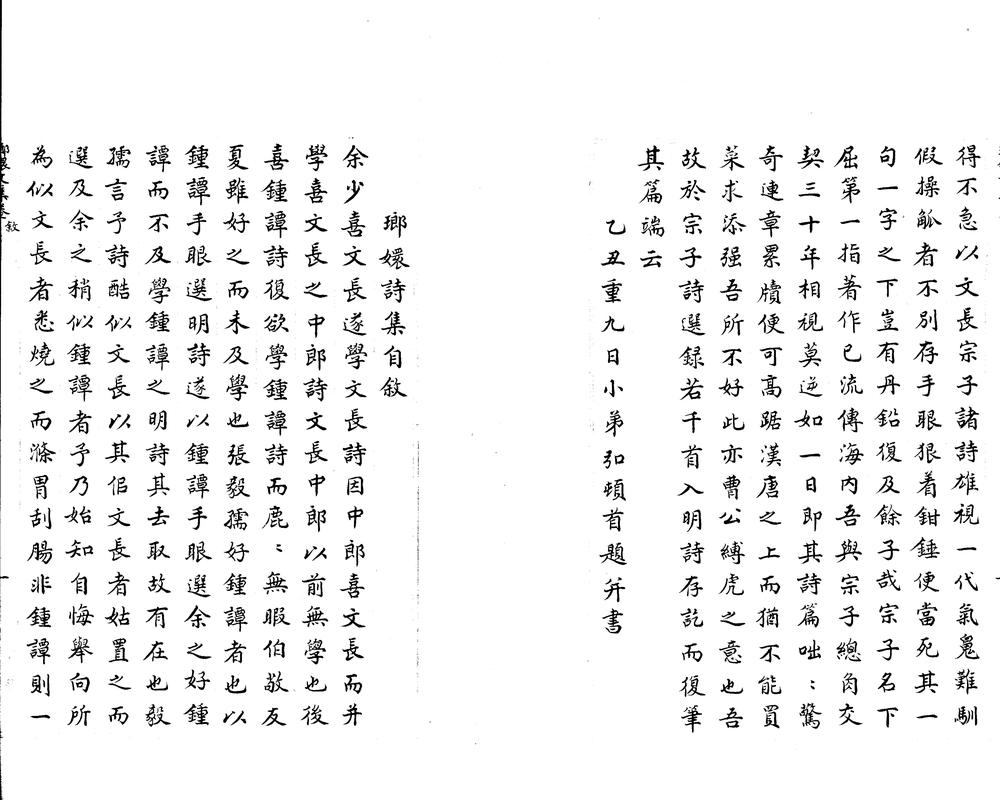 得不急以文長宗子諸詩雄視一代氣鬼難馴
假操觚者不別存手眼狠着鉗錘便當死其一
句一字之下豈有丹鉛復及餘子哉宗子名下
屈第一指著作已流傳海內吾與宗子總角交
契三十年相視莫逆如一日即其詩篇咄〻驚
奇連章累牘便可高踞漢唐之上而猶不能買
菜求添强吾所不好此亦曹公縛虎之意也吾
故於宗子詩選録若千首入明詩存訖而復筆
其篇端云
乙丑重九日小弟弘頓首題并書
瑯嬛詩集自敘
余少喜文長遂學文長詩因中郎喜文長而并
學喜文長之中郎詩文長中郎以前無學也後
喜鍾譚詩復欲學鍾譚詩而鹿〻無暇伯敬友
夏雖好之而未及學也張毅孺好鍾譚者也以
鍾譚手眼選明詩遂以鍾譚手眼選余之好鍾
譚而不及學鍾譚之明詩其去取故有在也毅
孺言予詩酷似文長以其佀文長者姑置之而
選及余之稍似鍾譚者予乃始知自悔舉向所
為似文長者悉燒之而滌胃刮腸非鍾譚則一
敘